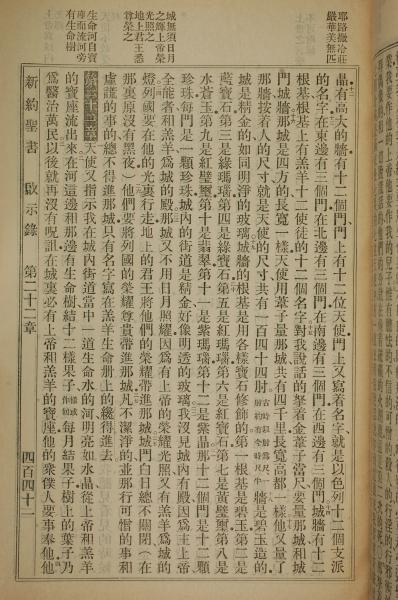 耶路撒冷莊
嚴華美無匹
城無須日月
之輝上帝榮
光照之
地上君王悉
尊榮之
生命河自寶
座而流河旁
有生命樹
晶有高大的牆有十二個門門上有十二位天使門上又寫着名字就是以色列十二個支派
的名字在東邊有三個門在北邊有三個門在南邊有三個門在西邊有三個門城牆有十二
根基根基上有羔羊十二使徒的十二個名字對我說話的拏着金葦子當尺要量那城和城
門城牆那城是四方的長寬一樣天使用葦子量那城共有四千里長寬高都一樣他又量了
那牆按着人的尺寸就是天使的尺寸共有一百四十四肘牆是碧玉造的
城是精金的如同明淨的玻璃城牆的根基是用各樣寶石修飾的第一根基是碧玉第二是
藍寶石第三是綠瑪瑙第四是綠寶石第五是紅瑪瑙第六是紅寶石第七是黃璧璽第八是
水蒼玉第九是紅璧璽第十是翡翠第十一是紫瑪瑙第十二是紫晶那十二個門是十二顆
珍珠每門是一顆珍珠城內的街道是精金好像明透的玻璃我沒見城內有殿因爲主上帝
全能者和羔羊爲城的殿那城又不用日月照耀因爲有上帝的榮耀光照又有羔羊爲城的
燈列國要在他的光裏行走地上的君王將他們的榮耀帶進那城城門白日總不關閉（在
那裏原沒有黑夜）他們要將列國的榮耀尊貴帶進那城凡不潔淨的並那行可憎的事和
虛謊的事的總不得進那城只有名字寫在羔羊生命册上的纔得進去
第二十二章天使又指示我在城內街道當中一道生命水的河明亮如水晶從上帝和羔羊
的寶座流出來在河這邊和那邊有生命樹結十二樣果子每月結果子樹上的葉子乃
爲醫治萬民以後就再沒有呪詛在城裏必有上帝和羔羊的寶座他的衆僕人要事奉他他
新約聖書 啟示錄 第二十二章 四百四十二